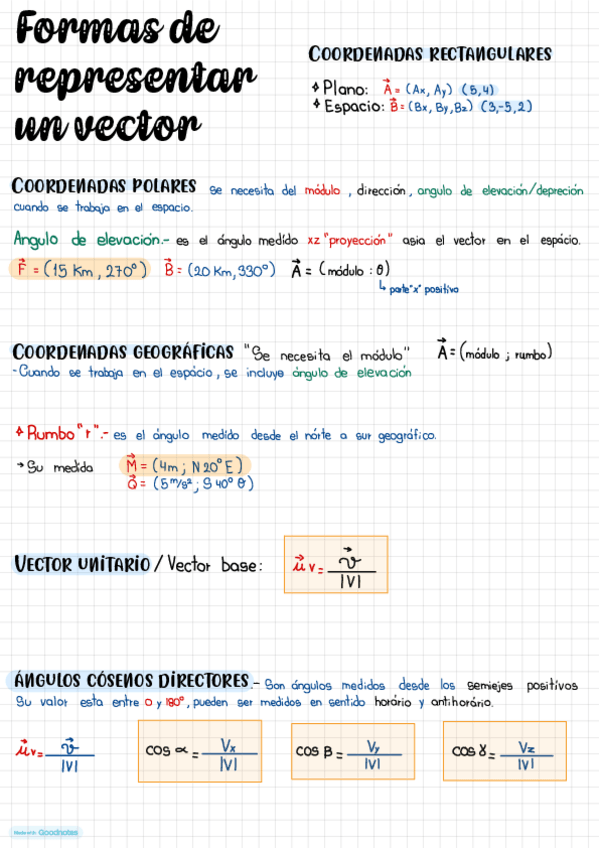 Formas de
representar
un vector
COORDENADAS RECTANGULARES
Plano: A = (Ax, Ay) (5,4)
Espacio: B = (Bx, By, Bz) (3,-5,2)
COORDENADAS POLARES se necesita del módulo, dirección, angulo de elevación/depreción
cuando se trabaja en el espacio.
Angulo de elevación.- es el ángulo medido xz "proyección" asia el vector en el espácio.
F = (15 Km, 270°) B = (20 Km, 330°) A = (módulo : θ)
↳ parte "x" positivo
COORDENADAS GEOGRÁFICAS "Se necesita el módulo" A = (módulo ; rumbo)
-Cuando se trabaja en el espácio, se incluye ángulo de elevación
Rumbo "r".- es el ángulo medido desde el nórte a sur geográfico.
→ Su medida M = (4m ; N 20° E)
Q = (5 m/s² ; S 40° θ)
VECTOR UNITARIO / Vector base: μv = v / |V|
ÁNGULOS CÓSENOS DIRECTORES.- Son ángulos medidos desde los semiejes positívos
Su valor esta entre 0 y 180°, pueden ser medidos en sentido horário y antihorário.
μv = v / |V| cos α = Vx / |V| cos β = Vy / |V| cos γ = Vz / |V|
Made with Goodnotes